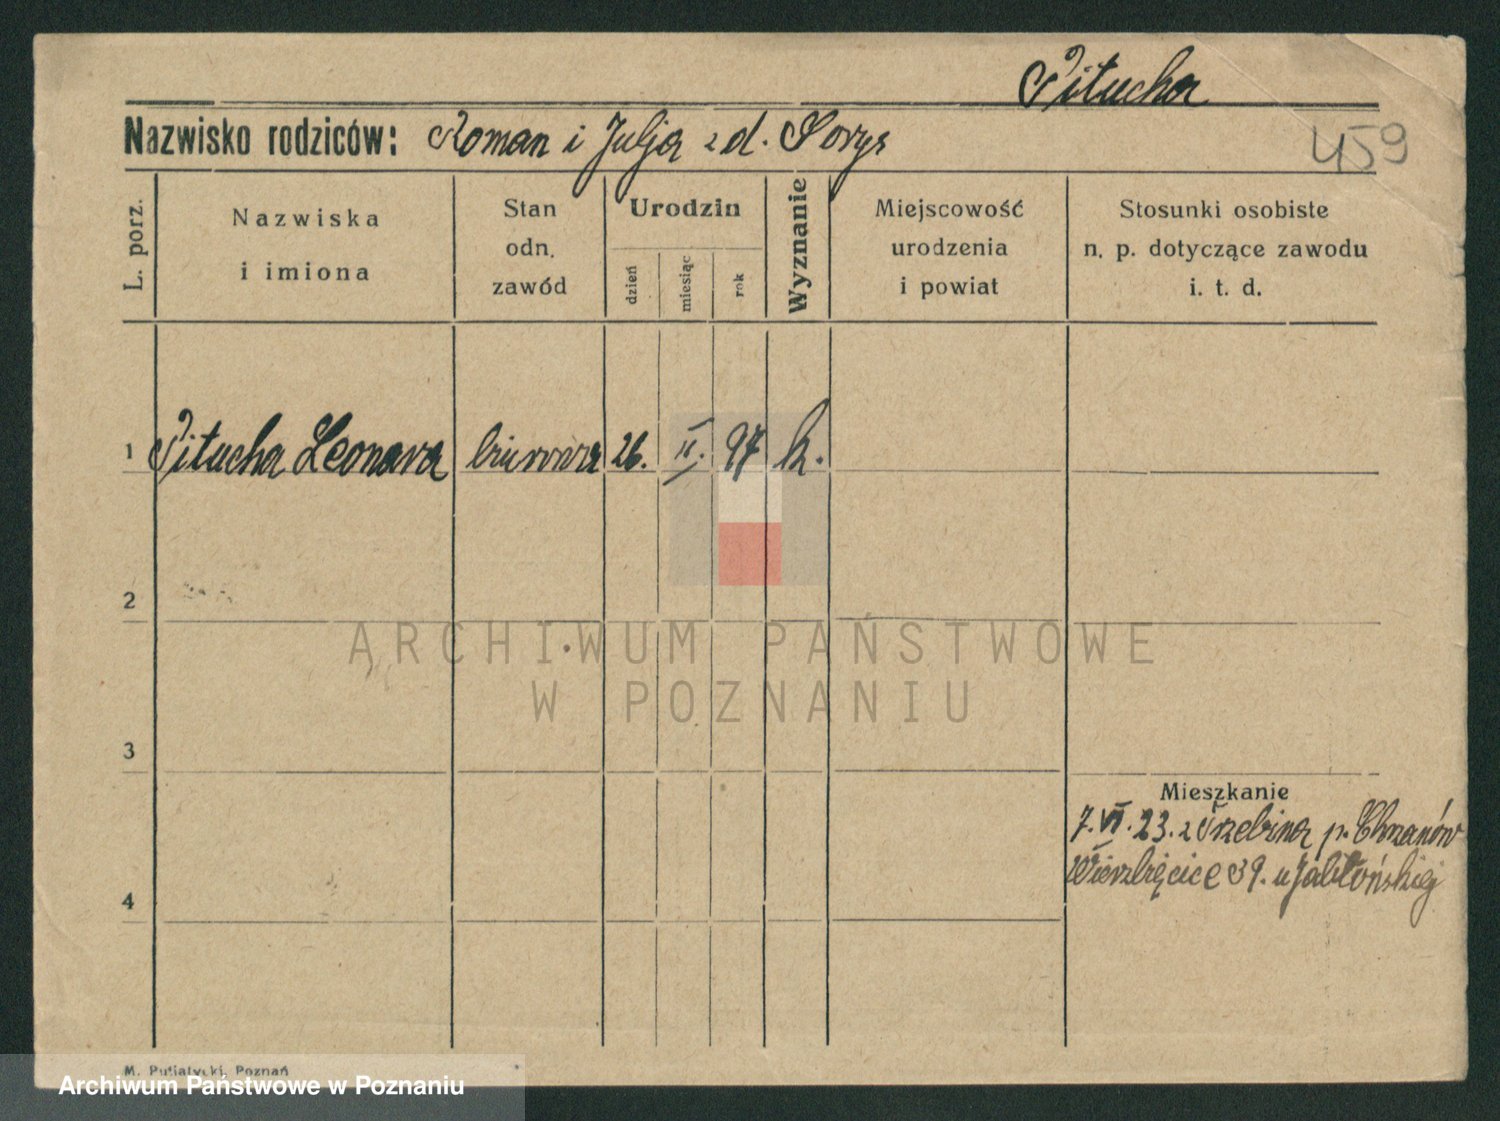 Pitucha
Nazwisko rodziców: Roman i Julja z d.
459
L. porz.
Nazwiska
i imiona
Stan
odn.
zawód
Urodzin
dzień
miesiąc
rok
Wyznanie
Miejscowość
urodzenia
i powiat
Stosunki osobiste
n. p. dotyczące zawodu
i. t. d.
1 Pitucha 26. II. 97 k.
2
ARCHIWUM PAŃSTWOWE
W POZNANIU
3
Mieszkanie
7.VI.23. z Trzebina p. Chrzanów
Wierzbięcice 39. u Jabłońskiej
4
M. Putiatycki, Poznań
Archiwum Państwowe w Poznaniu